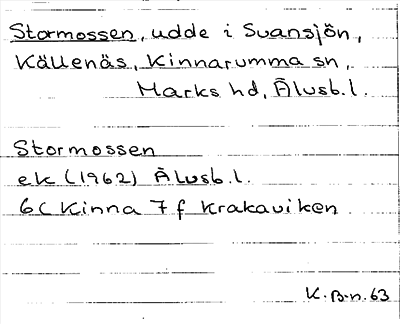 Stormossen, udde i Svansjön,
Källenäs, Kinnarumma sn,
Marks hd, Älvsb.l.
Stormossen
ek (1962) Älvsb.l.
6C Kinna 7f Krakaviken
K.B-n.63